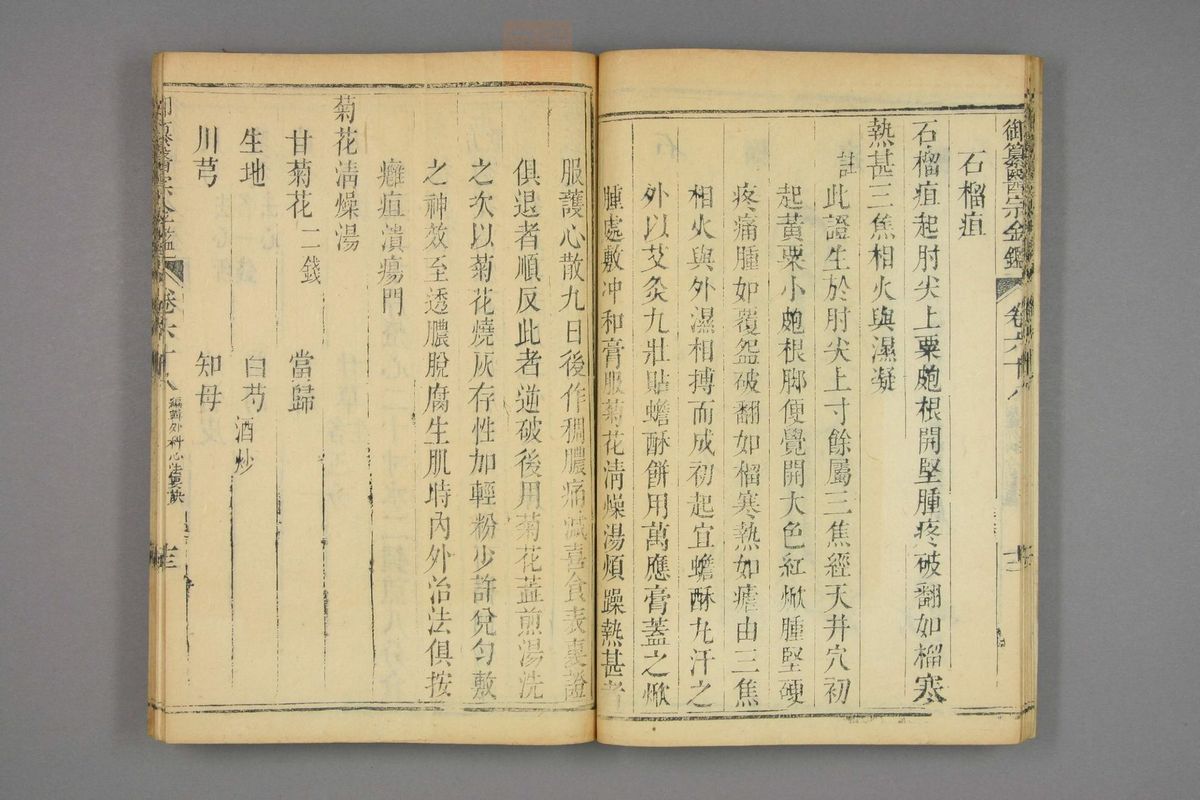 御纂醫宗金鑑 卷六十八
石榴疽
石榴疽起肘尖上粟皰根開堅腫疼破翻如榴寒
熱甚三焦相火與濕凝
註此證生於肘尖上寸餘屬三焦經天井穴初
起黃粟小皰根脚便覺開大色紅焮腫堅硬
疼痛腫如覆盌破翻如榴寒熱如瘧由三焦
相火與外濕相搏而成初起宜蟾酥丸汗之
外以艾灸九壯貼蟾酥餅用萬應膏蓋之焮
腫處敷冲和膏服菊花淸燥湯煩躁熱甚者
服護心散九日後作稠膿痛減喜食表裏證
俱退者順反此者逆破後用菊花蕋煎湯洗
之次以菊花燒灰存性加輕粉少許兌勻敷
之神效至透膿脫腐生肌時內外治法俱按
癰疽潰瘍門
菊花淸燥湯
甘菊花二錢 當歸
生地 白芍酒炒
川芎 知母
卷六十八 編輯外科心法要訣